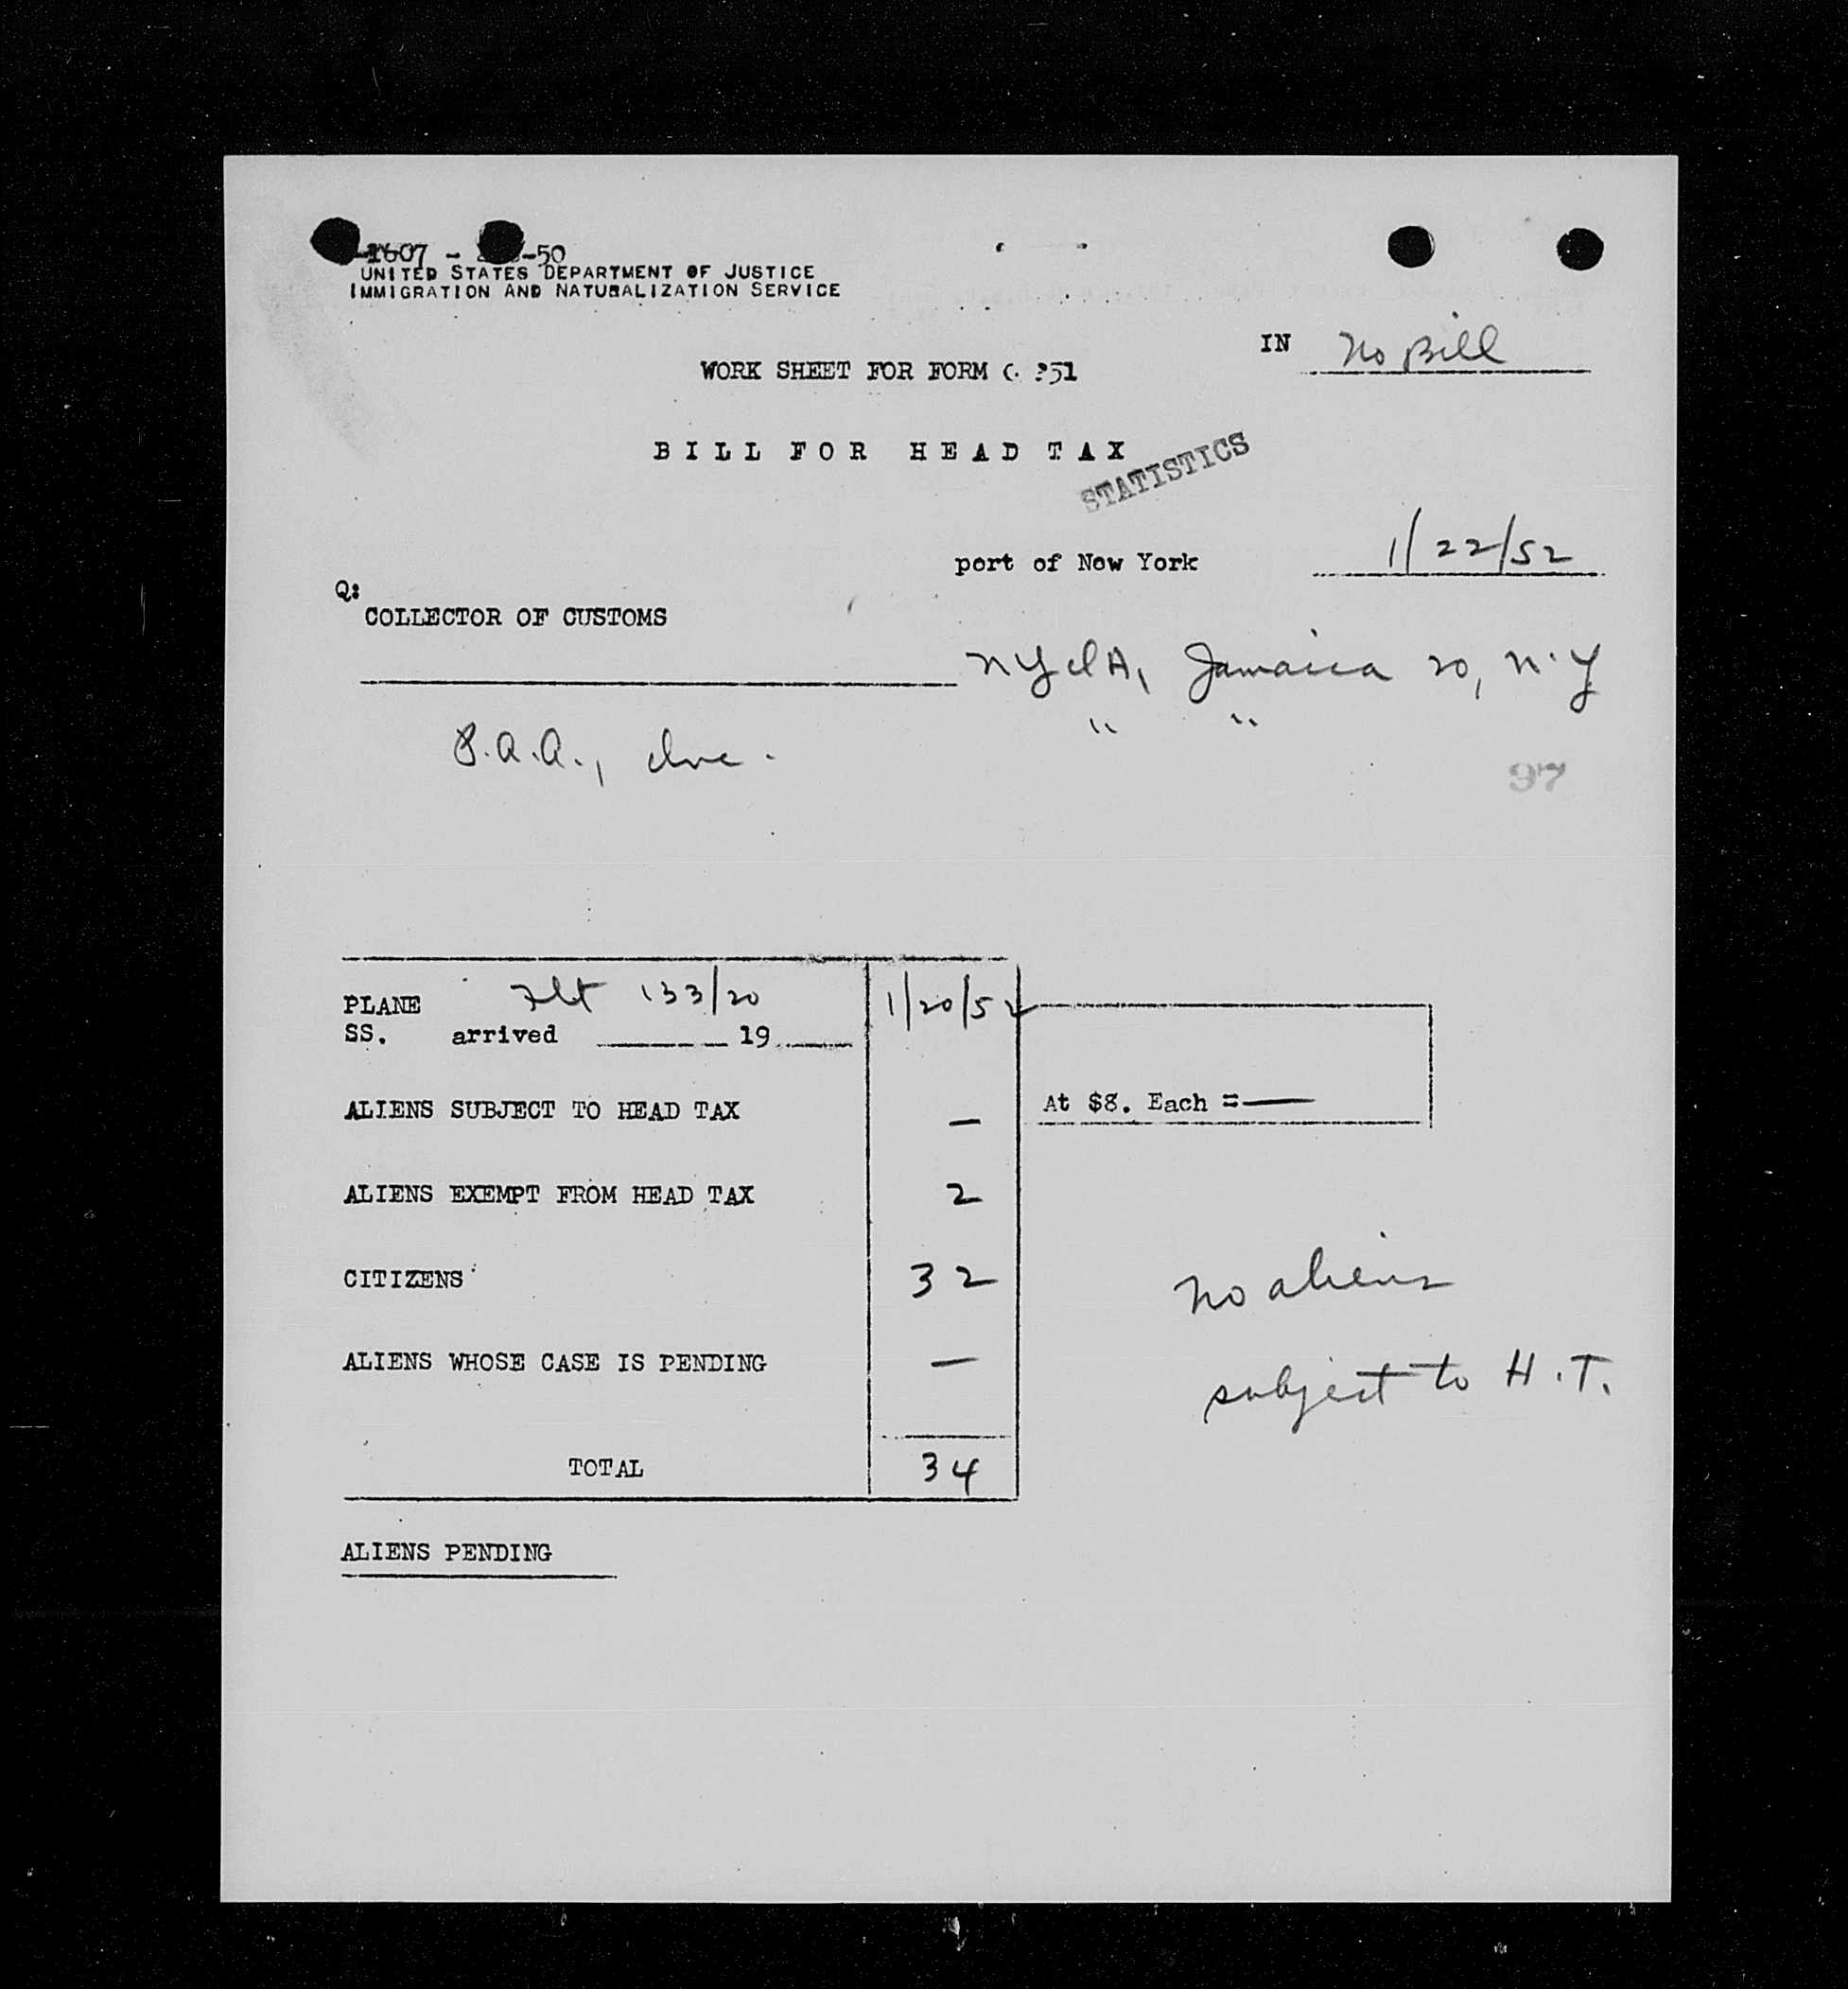 1607 - -50
UNITED STATES DEPARTMENT OF JUSTICE
IMMIGRATION AND NATURALIZATION SERVICE
IN No Bill
WORK SHEET FOR FORM 51
BILL FOR HEAD TAX
STATISTICS
port of New York 1/22/52
Q:
COLLECTOR OF CUSTOMS
NYIA, Jamaica 20, N.Y
" "
P.A.A., Inc.
97
PLANE Flt 133/20 1/20/52
SS. arrived 19
At $8. Each = —
ALIENS SUBJECT TO HEAD TAX —
ALIENS EXEMPT FROM HEAD TAX 2
CITIZENS 32
no aliens
ALIENS WHOSE CASE IS PENDING —
subject to H.T.
TOTAL 34
ALIENS PENDING